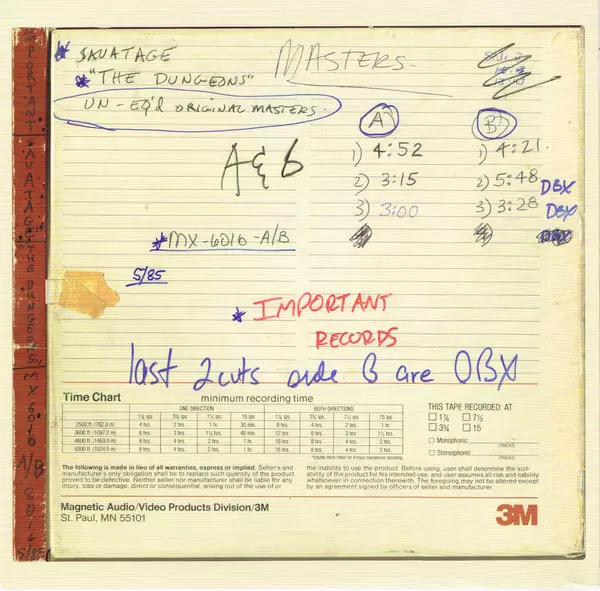 * SAVATAGE
* "THE DUNGEONS"
UN-EQ'D ORIGINAL MASTERS.
MASTERS.
A & B
A
1) 4:52
2) 3:15
3) 3:00
B
1) 4:21.
2) 5:48 DBX
3) 3:28 DBX
* MX-6016-A/B
5/85
* IMPORTANT
RECORDS
last 2 cuts side B are DBX
Time Chart
minimum recording time
ONE DIRECTION BOTH DIRECTIONS
1⅞ ips 3¾ ips 7½ ips 15 ips 1⅞ ips 3¾ ips 7½ ips 15 ips
2500 ft (762.0 m) 4 hrs. 2 hrs. 1 hr. 30 min. 8 hrs. 4 hrs. 2 hrs. 1 hr.
3600 ft (1097.2 m) 6 hrs. 3 hrs. 1½ hrs. 45 min. 12 hrs. 6 hrs. 3 hrs. 1½ hrs.
4800 ft (1463.0 m) 8 hrs. 4 hrs. 2 hrs. 1 hr. 16 hrs. 8 hrs. 4 hrs. 2 hrs.
5000 ft (1524.0 m) 8 hrs. 4 hrs. 2 hrs. 1 hr. 16 hrs. 8 hrs. 4 hrs. 2 hrs.
*Double these times for 4-track monophonic recording.
THIS TAPE RECORDED: AT
1⅞ 7½
3¾ 15
Monophonic
(TRACKS)
Stereophonic
(TRACKS)
The following is made in lieu of all warranties, express or implied. Seller's and
manufacturer's only obligation shall be to replace such quantity of the product
proved to be defective. Neither seller nor manufacturer shall be liable for any
injury, loss or damage, direct or consequential, arising out of the use of or
the inability to use the product. Before using, user shall determine the suit-
ability of the product for his intended use, and user assumes all risk and liability
whatsoever in connection therewith. The foregoing may not be altered except
by an agreement signed by officers of seller and manufacturer.
Magnetic Audio/Video Products Division/3M
St. Paul, MN 55101
3M